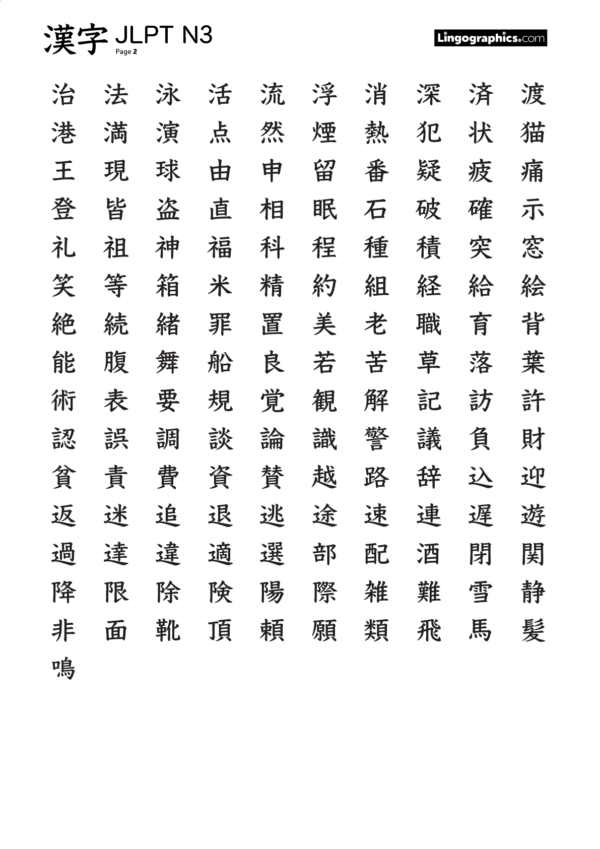 漢字 JLPT N3
Page 2
Lingographics.com
治 法 泳 活 流 浮 消 深 済 渡
港 満 演 点 然 煙 熱 犯 状 猫
王 現 球 由 申 留 番 疑 疲 痛
登 皆 盗 直 相 眠 石 破 確 示
礼 祖 神 福 科 程 種 積 突 窓
笑 等 箱 米 精 約 組 経 給 絵
絶 続 緒 罪 置 美 老 職 育 背
能 腹 舞 船 良 若 苦 草 落 葉
術 表 要 規 覚 観 解 記 訪 許
認 誤 調 談 論 識 警 議 負 財
貧 責 費 資 賛 越 路 辞 込 迎
返 迷 追 退 逃 途 速 連 遅 遊
過 達 違 適 選 部 配 酒 閉 関
降 限 除 険 陽 際 雑 難 雪 静
非 面 靴 頂 頼 願 類 飛 馬 髪
鳴